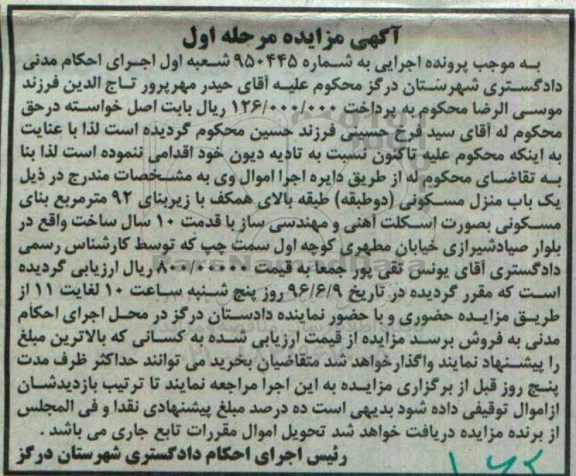 آگهی مزایده مرحله اول
به موجب پرونده اجرایی به شماره ۹۵۰۴۴۵ شعبه اول اجرای احکام مدنی
دادگستری شهرستان درگز محکوم علیه آقای حیدر مهرپرور تاج الدین فرزند
موسی الرضا محکوم به پرداخت ۱۲۶/۰۰۰/۰۰۰ ریال بابت اصل خواسته درحق
محکوم له آقای سید فرخ حسینی فرزند حسین محکوم گردیده است لذا با عنایت
به اینکه محکوم علیه تاکنون نسبت به تادیه دیون خود اقدامی ننموده است لذا بنا
به تقاضای محکوم له از طریق دایره اجرا اموال وی به مشخصات مندرج در ذیل
یک باب منزل مسکونی (دوطبقه) طبقه بالای همکف با زیربنای ۹۲ مترمربع بنای
مسکونی بصورت اسکلت آهنی و مهندسی ساز با قدمت ۱۰ سال ساخت واقع در
بلوار صیادشیرازی خیابان مطهری کوچه اول سمت چپ که توسط کارشناس رسمی
دادگستری آقای یونس تقی پور جمعا به قیمت ۸۰۰/۰۰۰۰۰۰ ریال ارزیابی گردیده
است که مقرر گردیده در تاریخ ۹۶/۶/۹ روز پنج شنبه ساعت ۱۰ لغایت ۱۱ از
طریق مزایده حضوری و با حضور نماینده دادستان درگز در محل اجرای احکام
مدنی به فروش برسد مزایده از قیمت ارزیابی شده به کسانی که بالاترین مبلغ
را پیشنهاد نمایند واگذارخواهد شد متقاضیان بخرید می توانند حداکثر ظرف مدت
پنج روز قبل از برگزاری مزایده به این اجرا مراجعه نمایند تا ترتیب بازدیدشان
ازاموال توقیفی داده شود بدیهی است ده درصد مبلغ پیشنهادی نقدا و فی المجلس
از برنده مزایده دریافت خواهد شد تحویل اموال مقررات تابع جاری می باشد .
رئیس اجرای احکام دادگستری شهرستان درگز